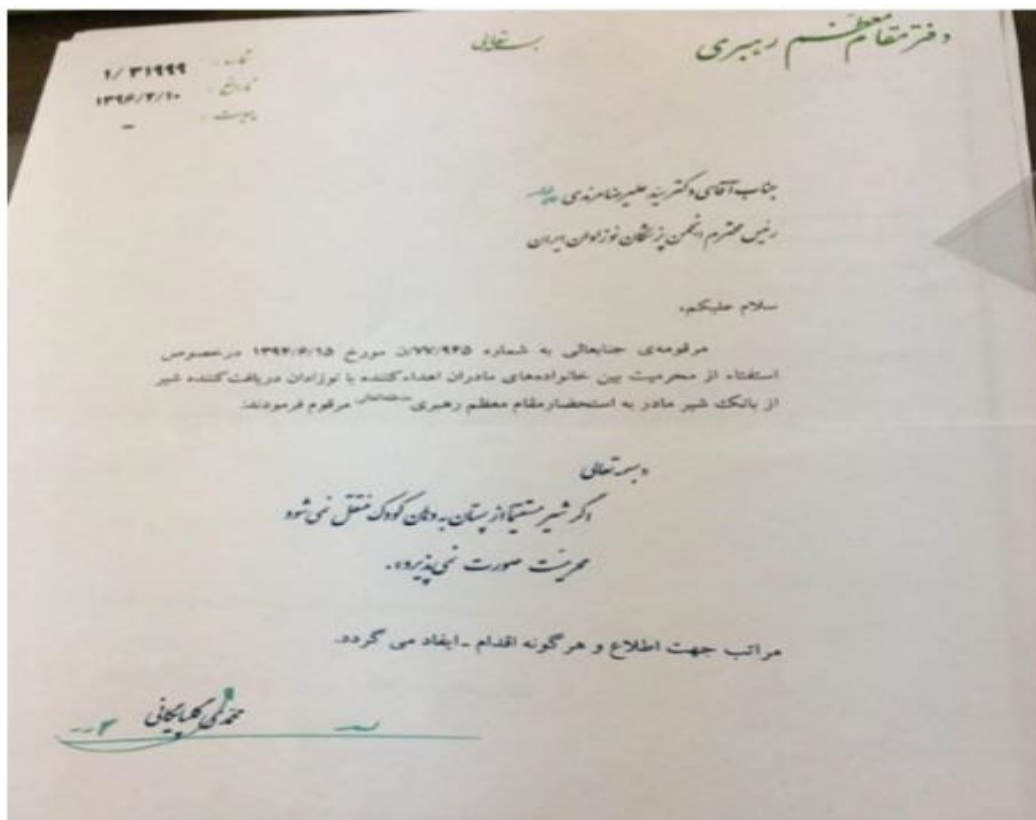 بسمه تعالی
دفتر مقام معظم رهبری
شماره : ۱/۳۱۹۹۹
تاریخ : ۱۳۹۶/۲/۱۰
پیوست : -
جناب آقای دکتر سید علیرضا مرندی
رئیس محترم انجمن پزشکان نوزادان ایران
سلام علیکم،
مرقومه‌ی جنابعالی به شماره ۷۷/۹۴۵/ن مورخ ۱۳۹۴/۶/۱۵ درخصوص
استفتاء از محرمیت بین خانواده‌های مادران اهداءکننده با نوزادان دریافت‌کننده شیر
از بانک شیر مادر به استحضار مقام معظم رهبری مدظله‌العالی مرقوم فرمودند:
«بسمه تعالی
اگر شیر مستقیماً از پستان به دهان کودک منتقل نمی شود
محرمیت صورت نمی پذیرد».
مراتب جهت اطلاع و هرگونه اقدام - ایفاد می گردد.
محمدی گلپایگانی